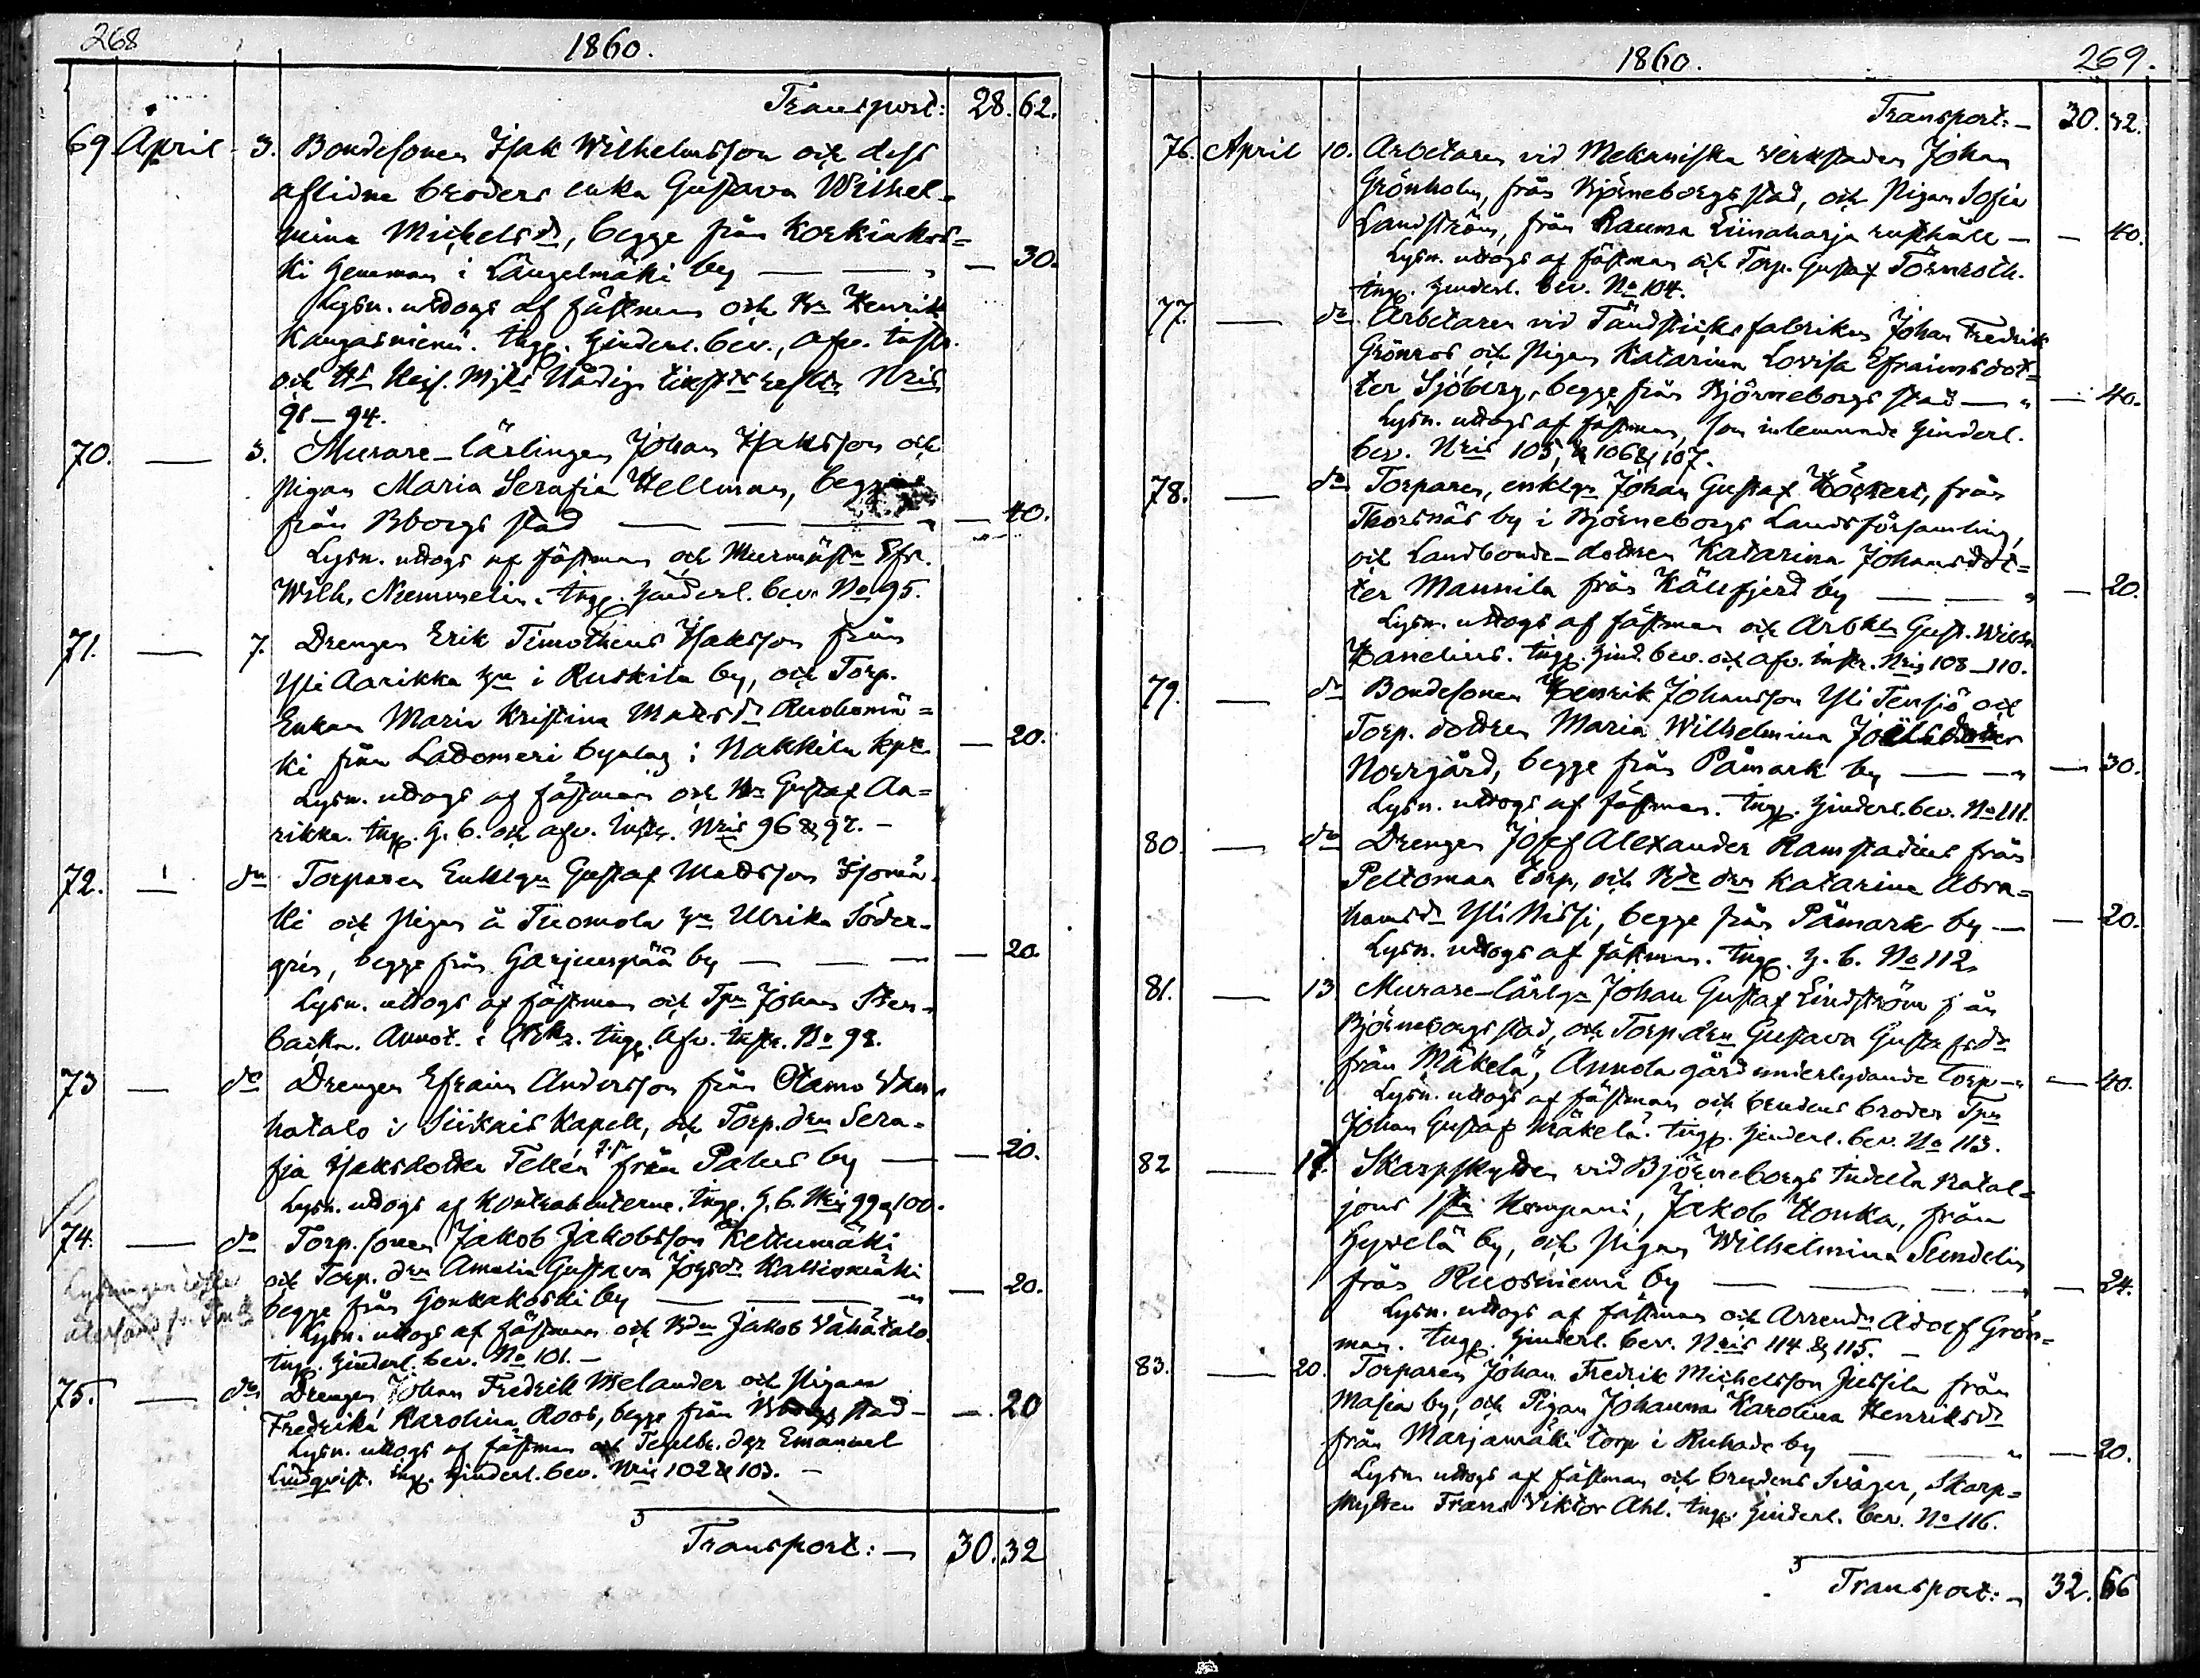 268
1860.
Transport: 28. 62.
69 April 3. Bondesonen Isak Wilhelmsson och dess
aflidne broders enka Gustava Wilhel-
mina Michelsdr, begge från Korkiakos-
ki hemman i Längelmäki by — — " — 30.
Lysn. uttogs af fästman och Bn Henrik
Kangasniemi. Ingg. hinderl. bev., afv. instr.
och Hs Keis. Mjts Nådiga Nris
98—94.
70. — 3. Murare-lärlingen Johan Isaksson och
pigan Maria Serafia Hellman, begge
från Bborgs stad — — — " — 40.
Lysn. uttogs af fästman och Murmästn Efr.
Wilh. Nummelin. Ingg. hinderl. bev. No 95.
71. — 7. Drengen Erik Timotheus Isaksson från
Yli Aarikka hn i Ruskila by, och Torp.
Enkan Maria Kristina Matsdr Ruohomä=
ki från Ladomeri byalag i Nakkila kpl. — 20.
Lysn. uttogs af fästman och Bn Gustaf Aa=
rikka. Ingg. h. b. och afv. instr. Nris 96 & 97. —
72. — do Torparen Enklgn Gustaf Matsson Isomä-
ki och pigan å Tuomola hn Ulrika Söder-
grén, begge från Harjunpää by — — — — 20.
Lysn. uttogs af fästman och Tpn Johan Sten-
back. Annot. i Ingg. Afv. instr. No 98.
73 — do Drengen Efraim Andersson från Otamo Wan-
hatalo i Siikais Kapell, och Torp. drn Sera-
fia Isaksdotter Tellén från Pakus by — — 20.
Lysn. uttogs af Kontrahenterne. Ingg. h. b. Nris 99 & 100.
74. — do Torp. sonen Jakob Jakobsson Kettumäki
och Torp. drn Amalia Gustava Johsdr Kalliomäki
begge från Honkakoski by — — — " — 20.
Lysn. uttogs af fästman och Bdn Jakob Vähätalo.
Ingg. hinderl. bev. No 101. —
Lysningen
återfans
75. — do Drengen Johan Fredrik Melander och Pigan
Fredrika Karolina Roos, begge från Bborgs stad — — 20
Lysn. uttogs af fästman och Emanuel
Lindqvist. Ingg. hinderl. bev. Nris 102 & 103. —
Transport: — 30. 32
1860. 269.
Transport: — 30. 32.
76. April 10. Arbetaren vid Mekaniska verkstaden Johan
Grönholm, från Björneborgs stad, och Pigan Sofia
Landström, från Rauma Liinaharja rusthåll — — 40.
Lysn. uttogs af fästman och Torp. Gustaf Törnroth.
Ingg. hinderl. bev. No 104.
77. — do Arbetaren vid Tändsticksfabriken Johan Fredrik
Grönros och Pigan Katarina Lovisa Efraimsdot=
ter Sjöberg, begge från Björneborgs stad — " — 40.
Lysn. uttogs af fästman, som inlemnade hinderl.
bev. Nris 105, 106 & 107.
78. — do Torparen, enklgn Johan Gustaf Höckert, från
Thorsnäs by i Björneborgs Landsförsamling,
och Landbonde-dottren Katarina Johansdot=
ter Mannila från Källfjerd by — — " — 20.
Lysn. uttogs af fästman och Arbkln Gust. Wilh.
Hanelius. Ingg. hind. bev. och afv. instr. Nris 108—110.
79. — do Bondesonen Henrik Johansson Yli Tensjö och
Torp. dottren Maria Wilhelmina Joëlsdotter
Norrgård, begge från Påmark by — — " — 30.
Lysn. uttogs af fästman. Ingg. hinderl. bev. No 111.
80. — do Drengen Josef Alexander Ramstadius från
Peltomaa torp, och Bde drn Katarina Abra=
hamsdr Yli Nissi, begge från Påmark by — — 20.
Lysn. uttogs af fästman. Ingg. h. b. No 112.
81. — 13 Murare-lärlgn Johan Gustaf Lindström från
Björneborgs stad, och Torp. drn Gustava Gustafsdr
från Mäkelä, Annola gård underlydande Torp — " — 40.
Lysn. uttogs af fästman och brudens broder Tpn
Johan Gustaf Mäkelä. Ingg. hinderl. bev. No 113.
82 — 17. Skarpskytten vid Björneborgs Indelta Batal=
jons 1sta Kompani, Jakob Honka, från
Hyvelä by, och Pigan Wilhelmina Sundelin
från Ruosniemi by — — — " — 24.
Lysn. uttogs af fästman och Arrendn Adolf Grön=
man. Ingg. hinderl. bev. Nris 114 & 115. —
83. — 20. Torparen Johan Fredrik Michelsson Jussila från
Masia by, och Pigan Johanna Karolina Henriksdr
från Marjamäki torp i Ruhade by — — " — 20.
Lysn. uttogs af fästman och brudens Svåger, Skarp=
skytten Frans Viktor Ahl. Ingg. hinderl. bev. No 116.
Transport: — 32. 66